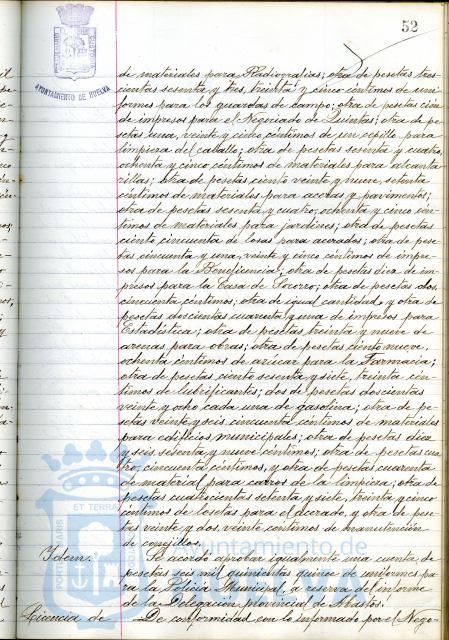 52
AYUNTAMIENTO DE HUELVA
de materiales para Radiografias; otra de pesetas tres-
cientas sesenta y tres, treinta y cinco céntimos de uni-
formes para los guardas de campo; otra de pesetas cien
de impresos para el Negociado de Quintas; otra de pe-
setas una, veinte y cinco céntimos de un cepillo para
limpieza del caballo; otra de pesetas sesenta y cuatro,
ochenta y cinco céntimos de materiales para alcanta-
rillas; otra de pesetas ciento veinte y nueve, setenta
céntimos de materiales para aceras y pavimentos;
otra de pesetas sesenta y cuatro, ochenta y cinco cén-
timos de materiales para jardines; otra de pesetas
ciento cincuenta de losas para acerados; otra de pese-
tas cincuenta y una, veinte y cinco céntimos de impre-
sos para la Beneficencia; otra de pesetas diez de im-
presos para la Casa de Socorro; otra de pesetas dos,
cincuenta céntimos; otra de igual cantidad, y otra de
pesetas doscientas cuarenta y una de impresos para
Estadística; otra de pesetas treinta y nueve de
arenas para obras; otra de pesetas ciento nueve,
ochenta céntimos de azúcar para la Farmacia;
otra de pesetas ciento setenta y siete, treinta cén-
timos de lubrificantes; dos de pesetas doscientas
veinte y ocho cada una de gasolina; otra de pe-
setas veinte y seis, cincuenta céntimos de materiales
para edificios municipales; otra de pesetas diez
y seis, sesenta y nueve céntimos; otra de pesetas cua-
tro, cincuenta céntimos, y otra de pesetas cuarenta
de material para carros de la limpieza; otra de
pesetas cuatrocientas setenta y siete, treinta y cinco
céntimos de losetas para el acerado, y otra de pese-
tas veinte y dos, veinte céntimos de manutención
de conejillos.
Idem. Se acordó aprobar igualmente una cuenta de
pesetas seis mil quinientas quince de uniformes pa-
ra la Policia Municipal, a reserva del informe
de la Delegación provincial de Abastos.
Licencia de De conformidad con lo informado por el Nego-
Ayuntamiento de
ET TERRA